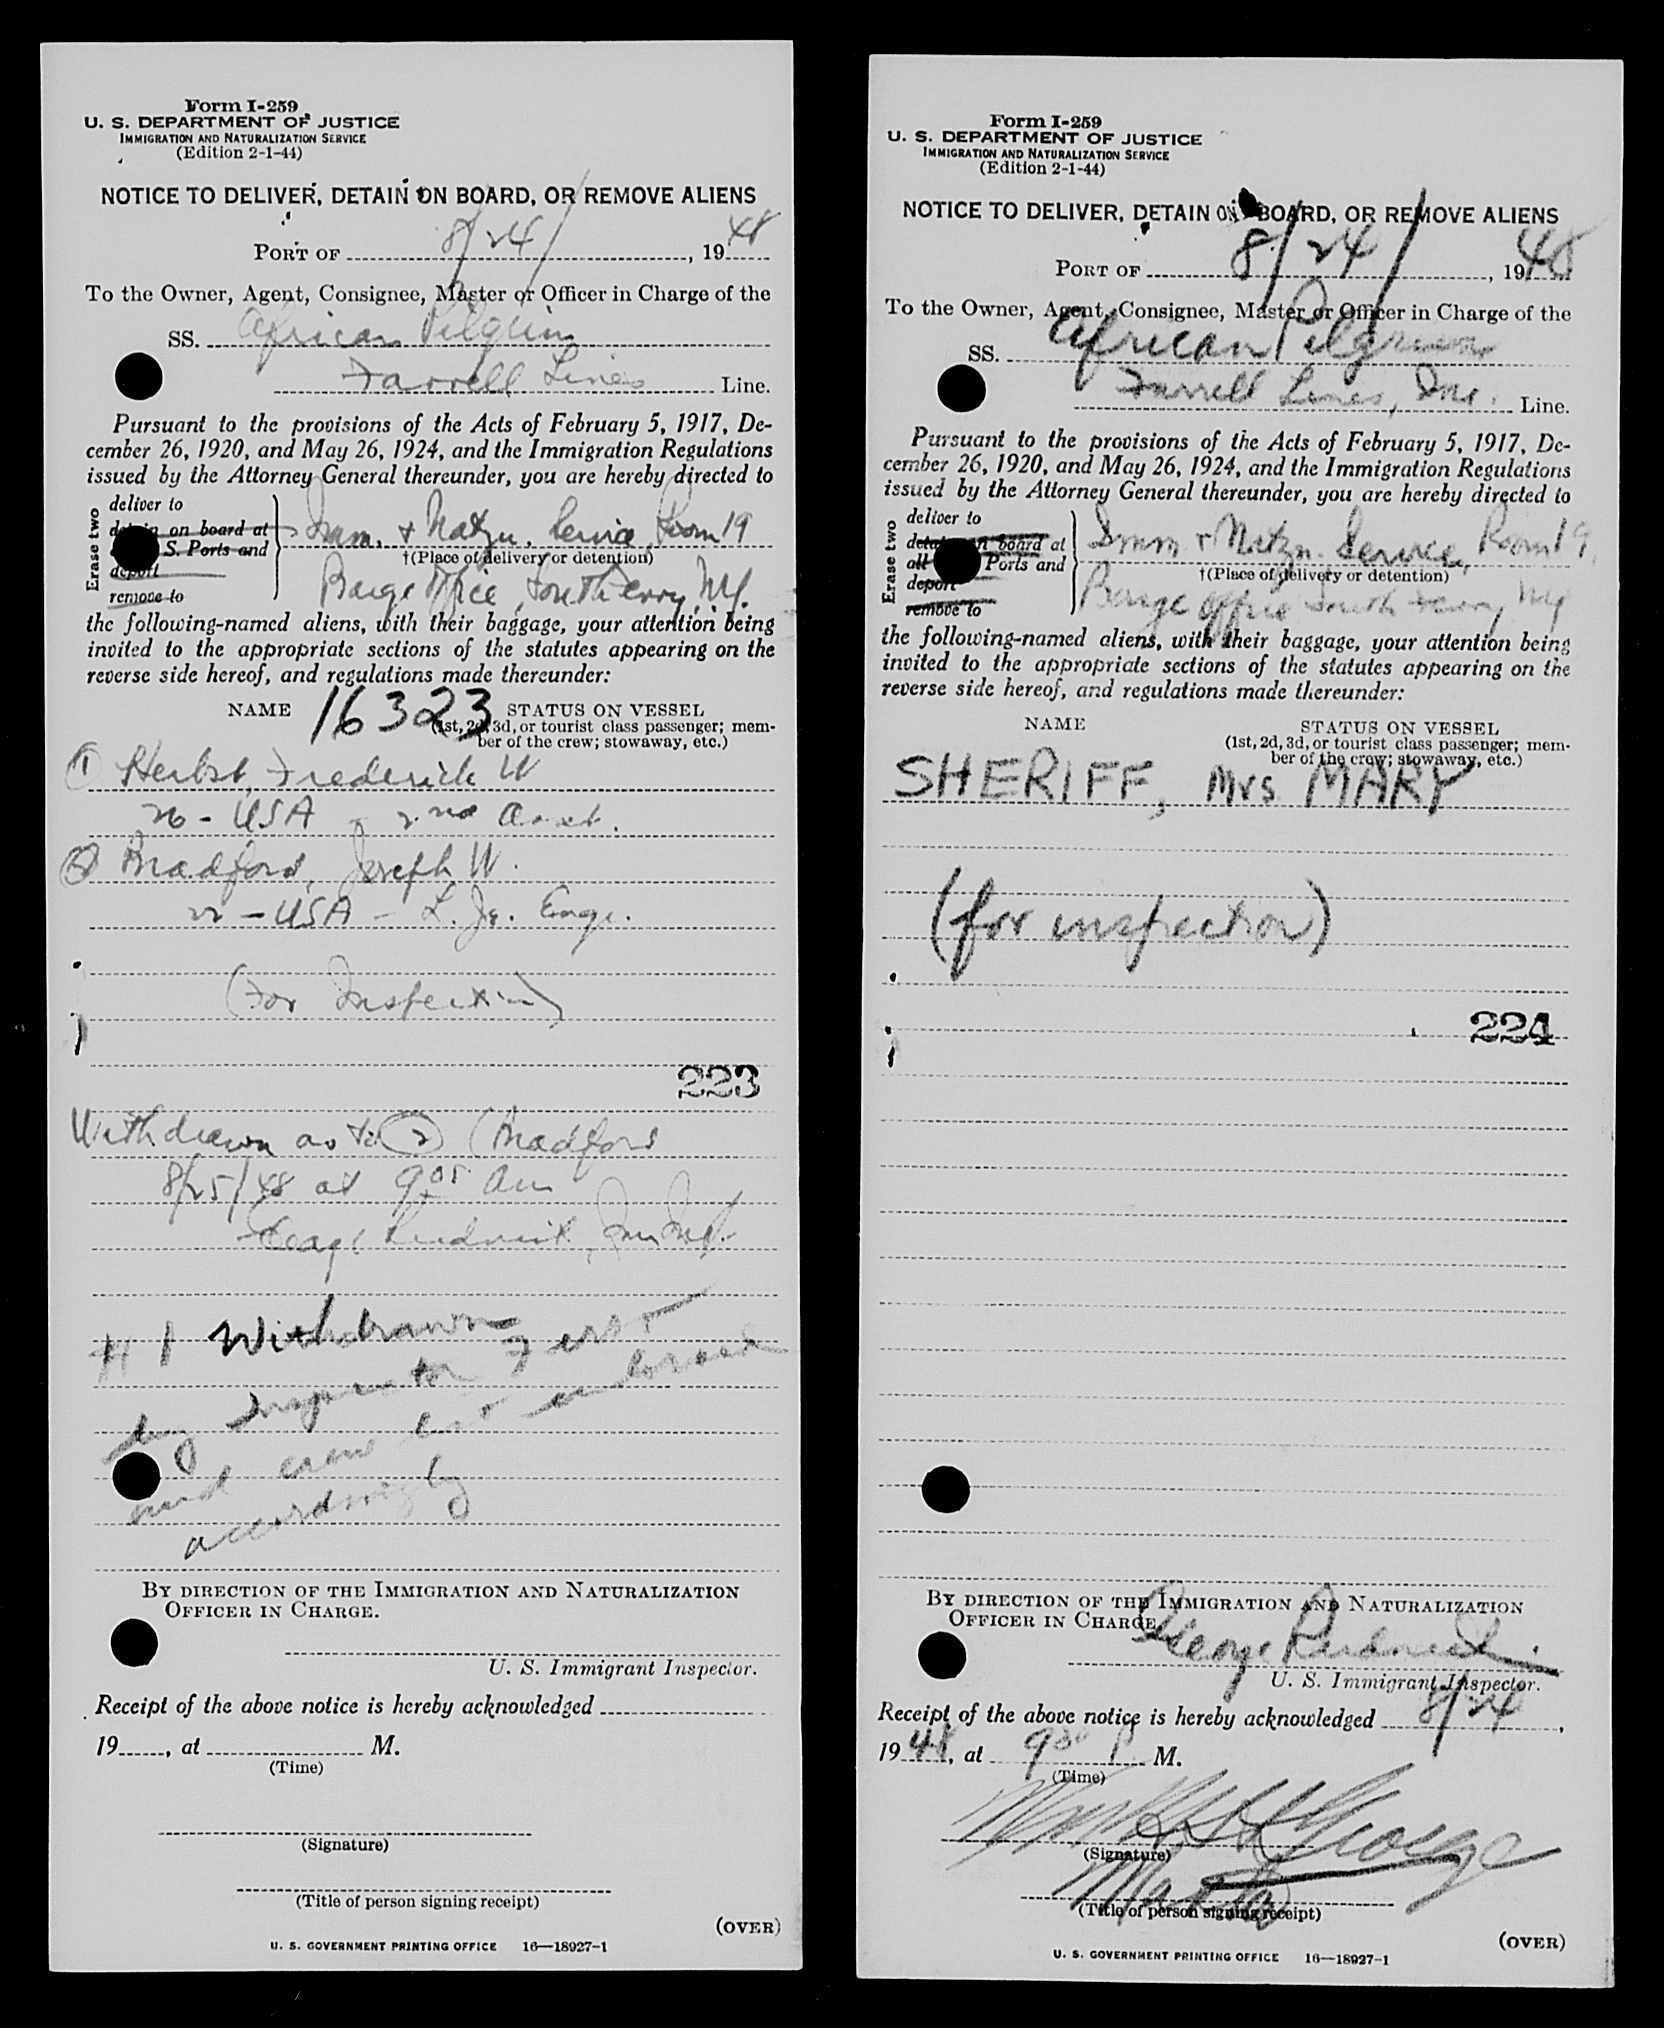 Form I-259
U. S. DEPARTMENT OF JUSTICE
IMMIGRATION AND NATURALIZATION SERVICE
(Edition 2-1-44)
NOTICE TO DELIVER, DETAIN ON BOARD, OR REMOVE ALIENS
PORT OF 8/24/, 1948
To the Owner, Agent, Consignee, Master or Officer in Charge of the
SS. African Pilgrim
Farrell Lines Line.
Pursuant to the provisions of the Acts of February 5, 1917, De-
cember 26, 1920, and May 26, 1924, and the Immigration Regulations
issued by the Attorney General thereunder, you are hereby directed to
Erase two
deliver to
detain on board at
S. Ports and
deport
remove to
Imm. & Natzn. Service, Room 19
†(Place of delivery or detention)
Barge Office, South Ferry, NY.
the following-named aliens, with their baggage, your attention being
invited to the appropriate sections of the statutes appearing on the
reverse side hereof, and regulations made thereunder:
NAME 16323 STATUS ON VESSEL
(1st, 2d, 3d, or tourist class passenger; mem-
ber of the crew; stowaway, etc.)
① Herbst, Frederick W
26 - USA - 2nd Asst.
② Bradford, Joseph W.
22 - USA - L. Jr. Engr.
(For Inspection)
223
Withdrawn as to ② (Bradford
8/25/48 at 9 05 am
George , Imm Insp.
# 1 Withdrawn
by Inspector
and crew list endorsed
accordingly
BY DIRECTION OF THE IMMIGRATION AND NATURALIZATION
OFFICER IN CHARGE.
U. S. Immigrant Inspector.
Receipt of the above notice is hereby acknowledged
19, at M.
(Time)
(Signature)
(Title of person signing receipt)
(OVER)
U. S. GOVERNMENT PRINTING OFFICE 16—18927-1
Form I-259
U. S. DEPARTMENT OF JUSTICE
IMMIGRATION AND NATURALIZATION SERVICE
(Edition 2-1-44)
NOTICE TO DELIVER, DETAIN ON BOARD, OR REMOVE ALIENS
PORT OF 8/24/, 1948
To the Owner, Agent, Consignee, Master or Officer in Charge of the
SS. African Pilgrim
Farrell Lines, Inc. Line.
Pursuant to the provisions of the Acts of February 5, 1917, De-
cember 26, 1920, and May 26, 1924, and the Immigration Regulations
issued by the Attorney General thereunder, you are hereby directed to
Erase two
deliver to
detain on board at
all Ports and
deport
remove to
Imm & Natzn. Service, Room 19,
†(Place of delivery or detention)
Barge Office South Ferry NY
the following-named aliens, with their baggage, your attention being
invited to the appropriate sections of the statutes appearing on the
reverse side hereof, and regulations made thereunder:
NAME STATUS ON VESSEL
(1st, 2d, 3d, or tourist class passenger; mem-
ber of the crew; stowaway, etc.)
SHERIFF, Mrs MARY
(for inspection)
224
BY DIRECTION OF THE IMMIGRATION AND NATURALIZATION
OFFICER IN CHARGE.
George
U. S. Immigrant Inspector.
Receipt of the above notice is hereby acknowledged 8/24,
1948, at 9 30 P M.
(Time)
George
(Signature)
Master
(Title of person signing receipt)
(OVER)
U. S. GOVERNMENT PRINTING OFFICE 16—18927-1